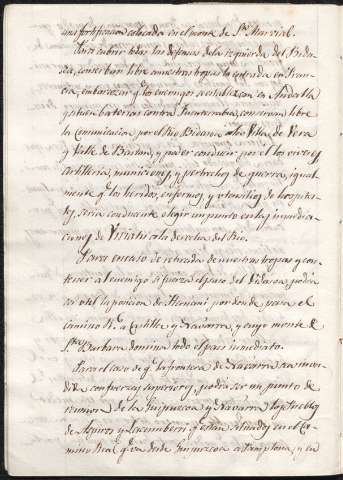 una fortificacion colocada en el monte de Sn. Marzial.
Para cubrir todas las defensas de la izquierda del Bida-
soa, conserbar libre a nuestras tropas la entrada en Fran-
cia, embarazar q.e los enemigos se establezcan en Andalla
y situen baterias contra Fuenterrabia, conserbar libre
la Comunicacion por el Rio Bidasoa a la Villa de Vera
y Valle de Bastan, y poder conducir por el los viveres,
artilleria, municiones, y pertrechos de guerra, igual-
mente q.e los heridos, enfermos y utensilios de hospita-
les, seria conducente elegir un punto en las inmedia-
ciones de Viriatu a la derecha del Rio.
Para en caso de retirada de nuestras tropas y con-
tener al enemigo si fuerza el paso del Bidasoa, podria
ser util la posicion de Hernani por donde pasa el
camino Rl. a Castilla y Navarra, y cuyo monte de
Sta. Barbara domina todo el pais inmediato.
Para el caso de q.e la frontera de Navarra sea inva-
dida con fuerzas superiores, podria ser un punto de
reunion de la Guipuzcoa y Navarra los Pueblos
de Aspiroz y Lecumberri q.e estan situados en el Ca-
mino Real q.e va desde Guipuzcoa a Pamplona, y en